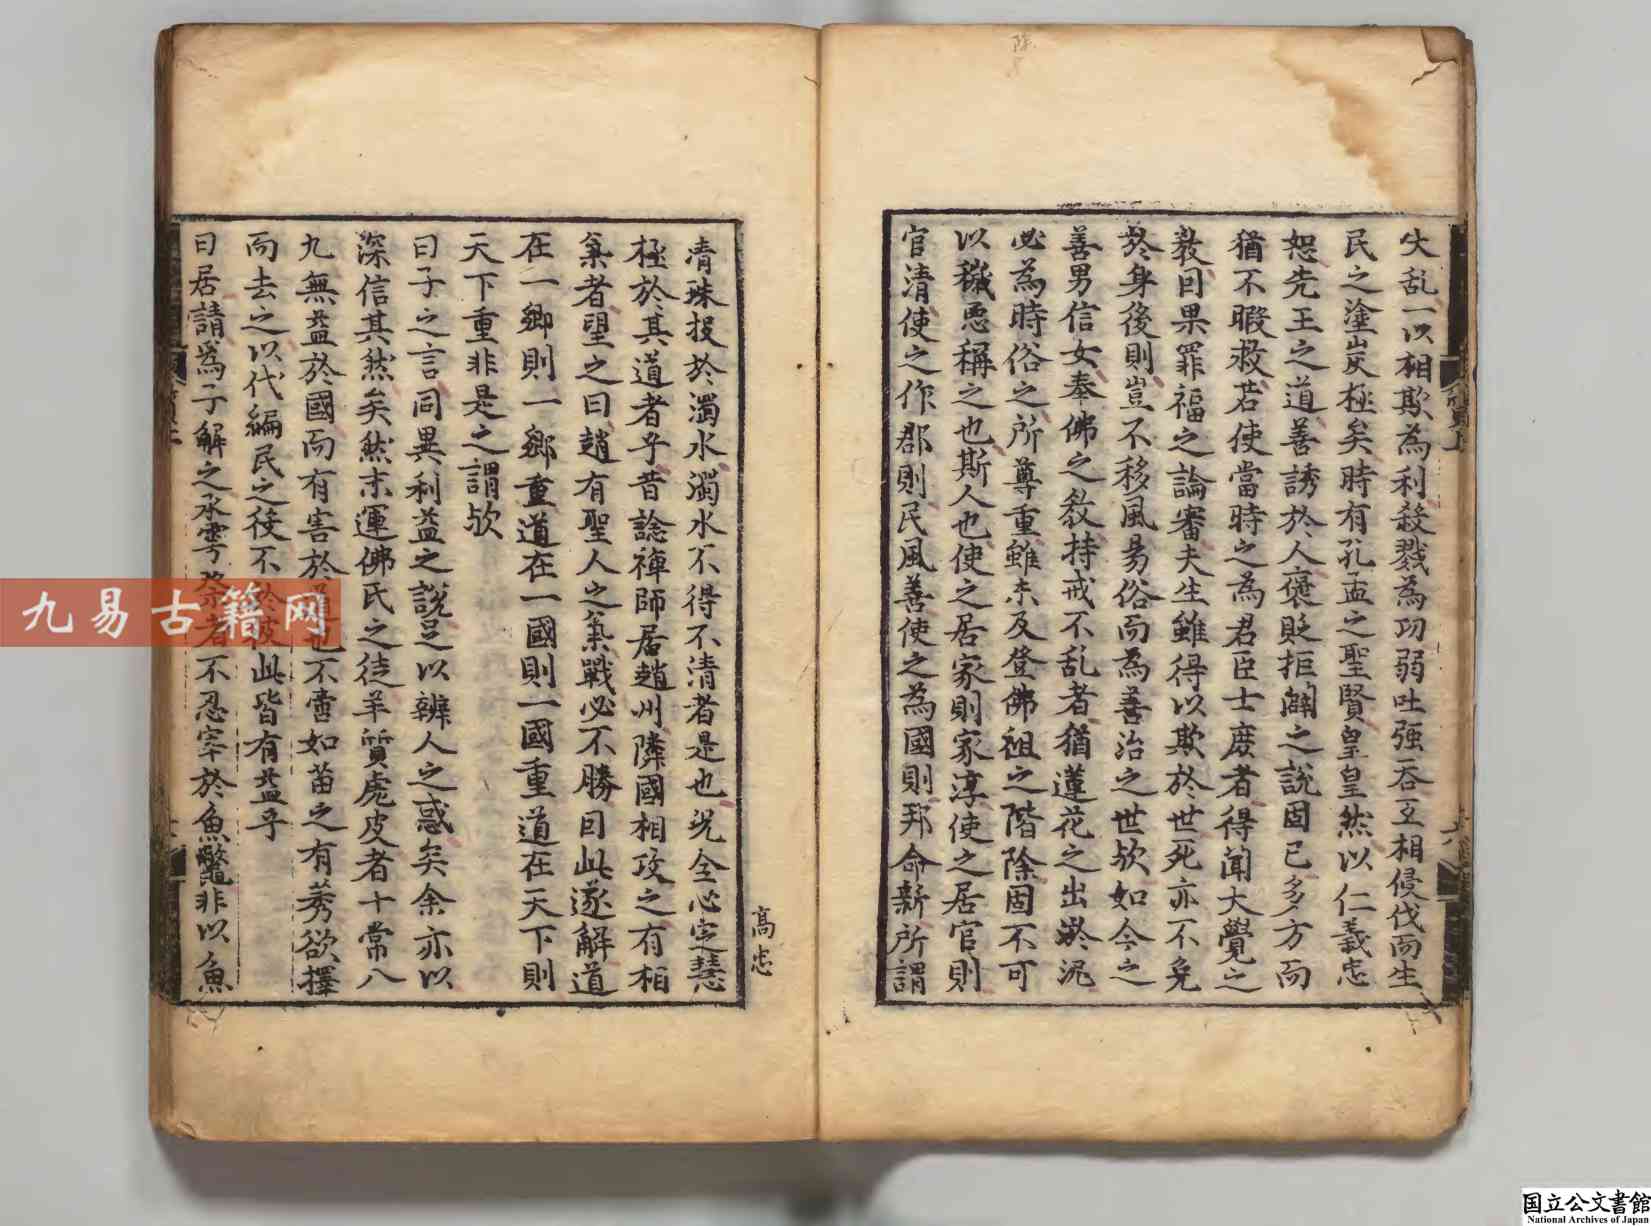 失乱一以相欺為利殺戮為功弱吐强吞互相侵伐而生
民之塗炭極矣時有孔孟之聖賢皇皇然以仁義忠
恕先王之道善誘於人褒貶拒闢之說固已多方而
猶不暇救若使當時之為君臣士庻者得聞大覺之
教因果罪福之論審夫生雖得以欺於世死亦不免
於身後則豈不移風易俗而為善治之世欤如今之
善男信女奉佛之教持戒不乱者猶蓮花之出淤泥
必為時俗之所尊重雖未及登佛祖之階除固不可
以穢悪稱之也斯人也使之居家則家淳使之居官則
官清使之作郡則民風善使之為國則邦命新所謂
清珠投於濁水濁水不得不清者是也況全心定慧
極於其道者乎昔諗禅師居趙州隣國相攻之有相
氣者望之曰趙有聖人之氣戰必不勝因此遂解道
在一鄉則一鄉重道在一國則一國重道在天下則
天下重非是之謂欤
曰子之言同異利益之說足以辨人之惑矣余亦以
深信其然矣然末運佛氏之徒羊質虎皮者十常八
九無益於國而有害於 也不啻如苗之有莠欲擇
而去之以代編民之役不 於彼此皆有益乎
曰居請爲子解之承雩祭者不忍宰於魚鱉非以魚
高忠
九易古籍网
国立公文書館
National Archives of Japan